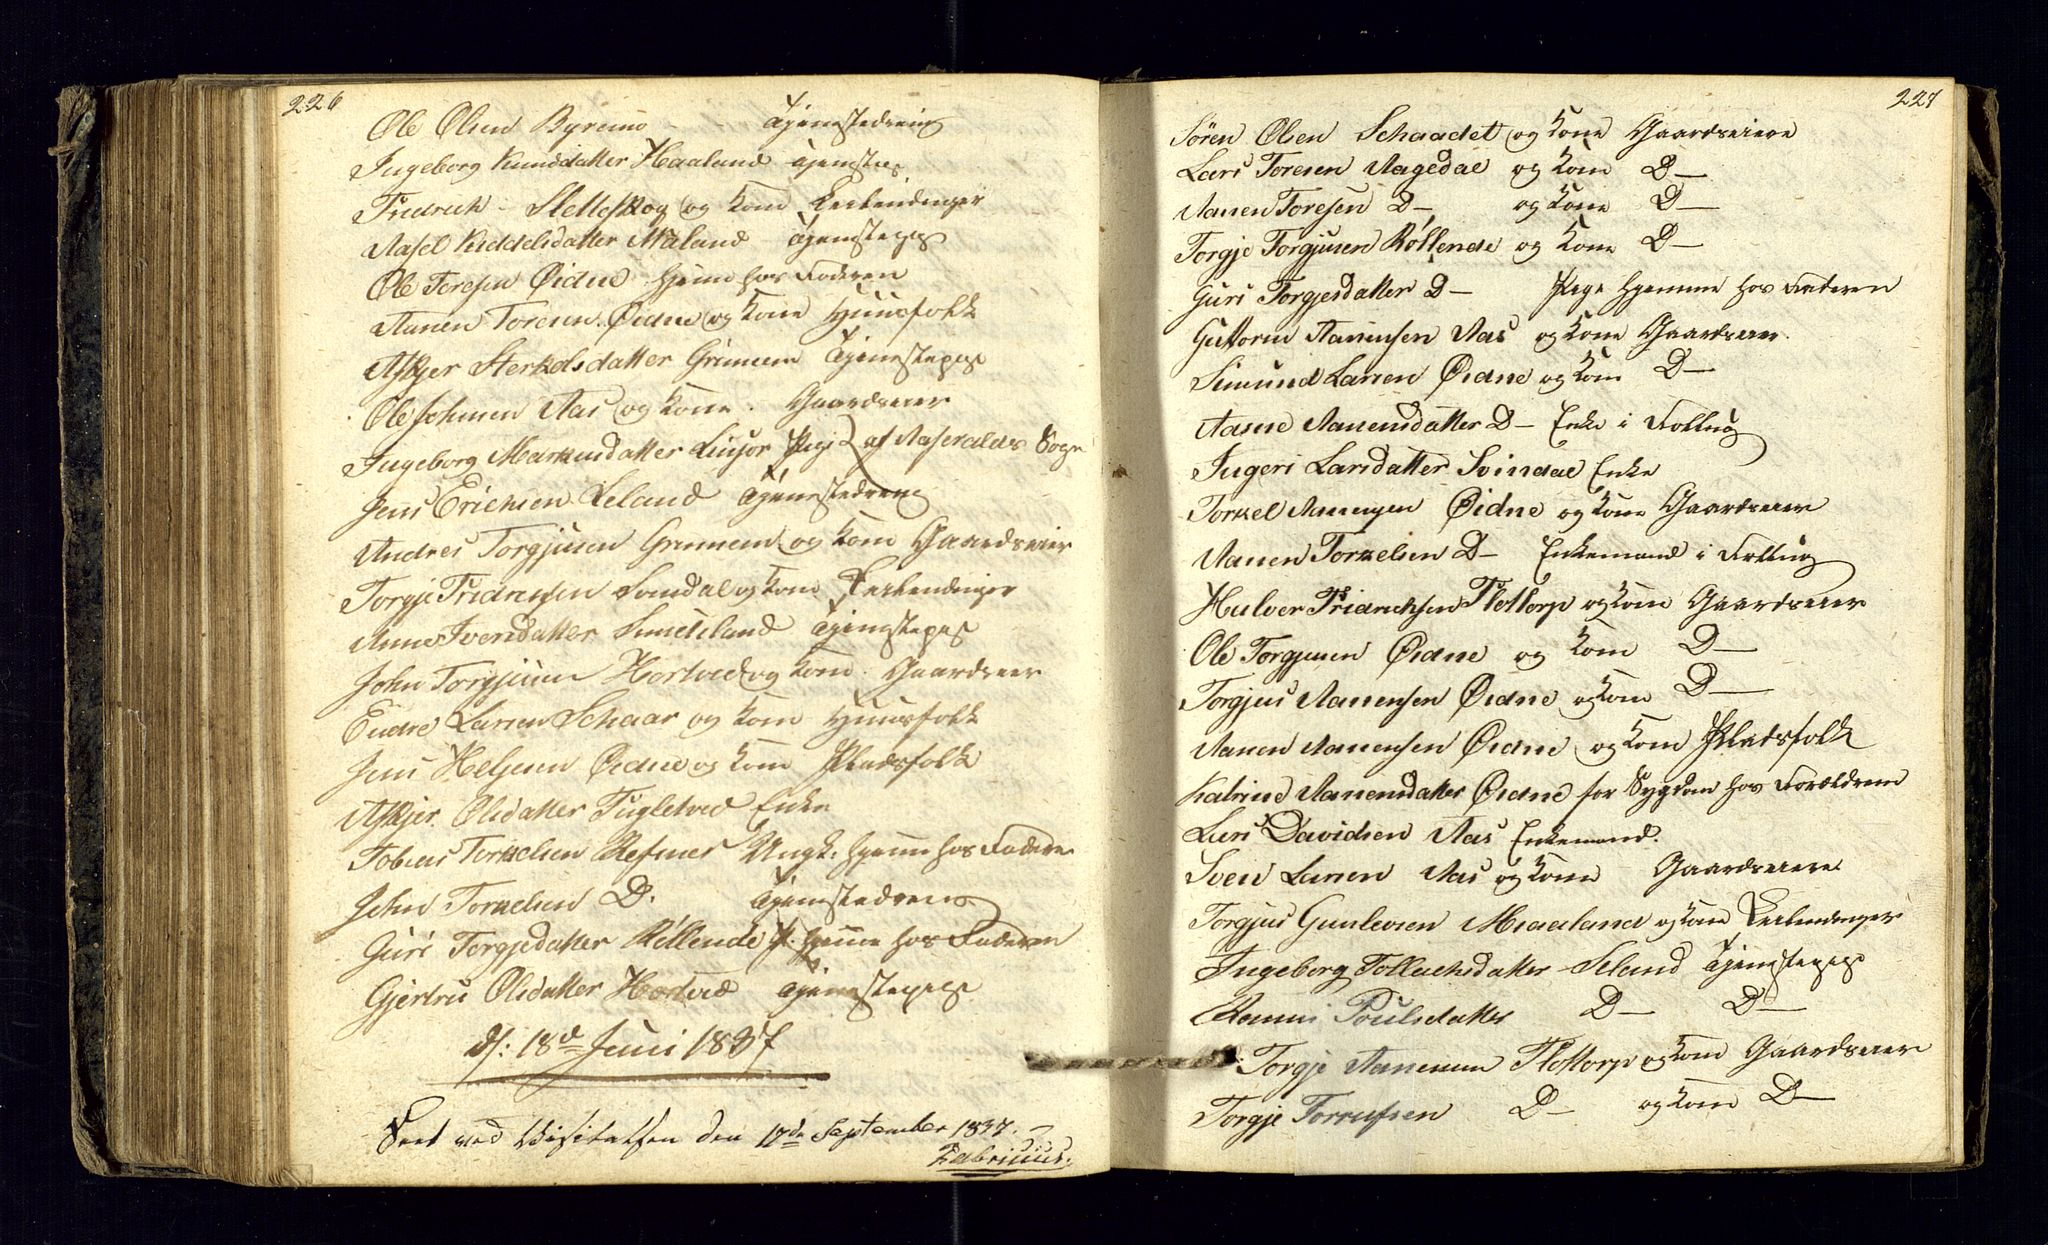 226
Ole Olsen Byremo - - Tjenestedreng
Ingeborg Knudsdatter Haaland Tjenestep
Fredrich - Stelleskog og Kone Leilendinger
Aasel Keddelsdatter Maland Tjenestepige
Ole Toresen Øidne hjeme hos Faderen
Aanen Toresen Øidne og Kone Huusfolk
Askjer Sterkolsdatter Grimem Tjenestepige
Ole Johnsen Aas og Kone Gaardseier
Ingeborg Markusdatter Pige af Aaseralds Sogn
Jens Erichsen Leland Tjenestedreng
Andres Torgjusen Grimem og Kone Gaardseier
Torgje Fredrichsen Somdal og Kone Leilendinger
Anne Iversdatter Smedsland Tjenestepige
John Torgjusen Hortved og Kone Gaardseier
Endre Larsen Schaar og Kone Huusfolk
Jens Heljesen Øidne og Kone Pladsfolk
Askjer Olsdatter Fugletved Enke
Tobias Torkelsen Refsnes Ungk. hjeme hos Fadere
John Torkelsen D. Tjenestedreng
Guri Torgjedatter Røllende P. hjeme hos Faderen
Gjertru Olsdatter Hortved Tjenestepige
d: 18d Juni 1837
Seet ved Visitatsen den 17de September 1837.
Fabricius.
227
Søren Olsen Schaadet og Kone Gaardseiere
Lars Toresen Aagedal og Kone D—
Aanen Toresen D— og Kone D—
Torgje Torgjusen Røllende og Kone D—
Guri Torgjesdatter D— Pige hjemme hos Faderen
Guttorm Aanensen Aas og Kone Gaardseier.
Simund Larsen Øidne og Kone D—
Aasne Aanensdatter D— Enke i Follug
Ingeri Larsdatter Svindal Enke
Torkel Aanensen Øidne og Kone Gaardseier
Aanen Torkelsen D— Enkemand i Follug
Halvor Fridrichsen Flottorp og Kone Gaardseier
Ole Torgjusen Øidne og Kone D—
Torgjus Aanensen Øidne og Kone D—
Aanen Aanensen Øidne og Kone Pladsfolk
Katrine Aanensdatter Øidne for Sygdom hos Forældrene
Lars Davidsen Aas Enkemand.
Sven Larsen Aas og Kone Gaardseiere
Torgjus Gunlevsen Miaaland og Kone Leilendinger
Ingeborg Tollachsdatter Seland Tjenestepige
Ranni Poulsdatter D— D—
Torgje Aanensen Flottorp og Kone Gaardseier
Torgje D— og Kone D—